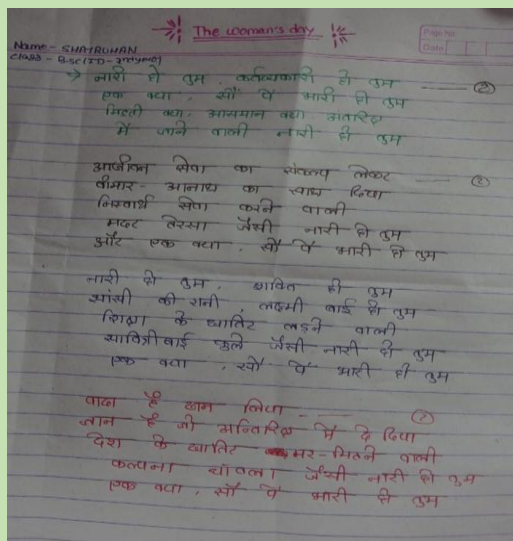 The woman's day
Page No.
Date
Name - SHATRUHAN
Class - B.Sc (IID-
→ नारी हो तुम, कर्तव्यकारी हो तुम —— (2)
एक क्या, सौ पे भारी हो तुम
मिट्टी क्या, आसमान क्या, अंतरिक्ष
में जाने वाली नारी हो तुम
आजीवन सेवा का संकल्प लेकर —— (2)
बीमार - आनाथ का साथ दिया
निस्वार्थ सेवा करने वाली
मदर टेरेसा जैसी नारी हो तुम
और एक क्या, सौ पे भारी हो तुम
नारी हो तुम, शक्ति हो तुम
झांसी की रानी, लक्ष्मी बाई हो तुम
शिक्षा के खातिर लड़ने वाली
सावित्री बाई फुले जैसी नारी हो तुम
एक क्या, सौ पे भारी हो तुम
वादा है ठान लिया —— (2)
जान है जो अन्तरिक्ष में दे दिया
देश के खातिर मर-मिटने वाली
कल्पना चावला जैसी नारी हो तुम
एक क्या, सौ पे भारी हो तुम